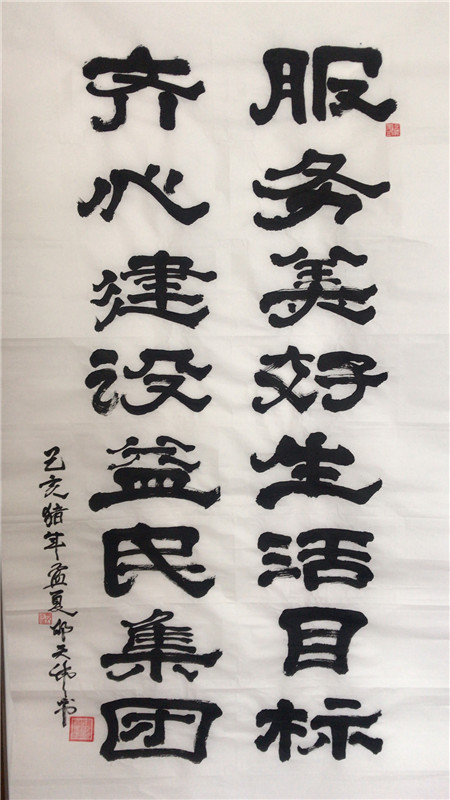 服务美好生活目标
齐心建设益民集团
己亥猪年孟夏 天 书